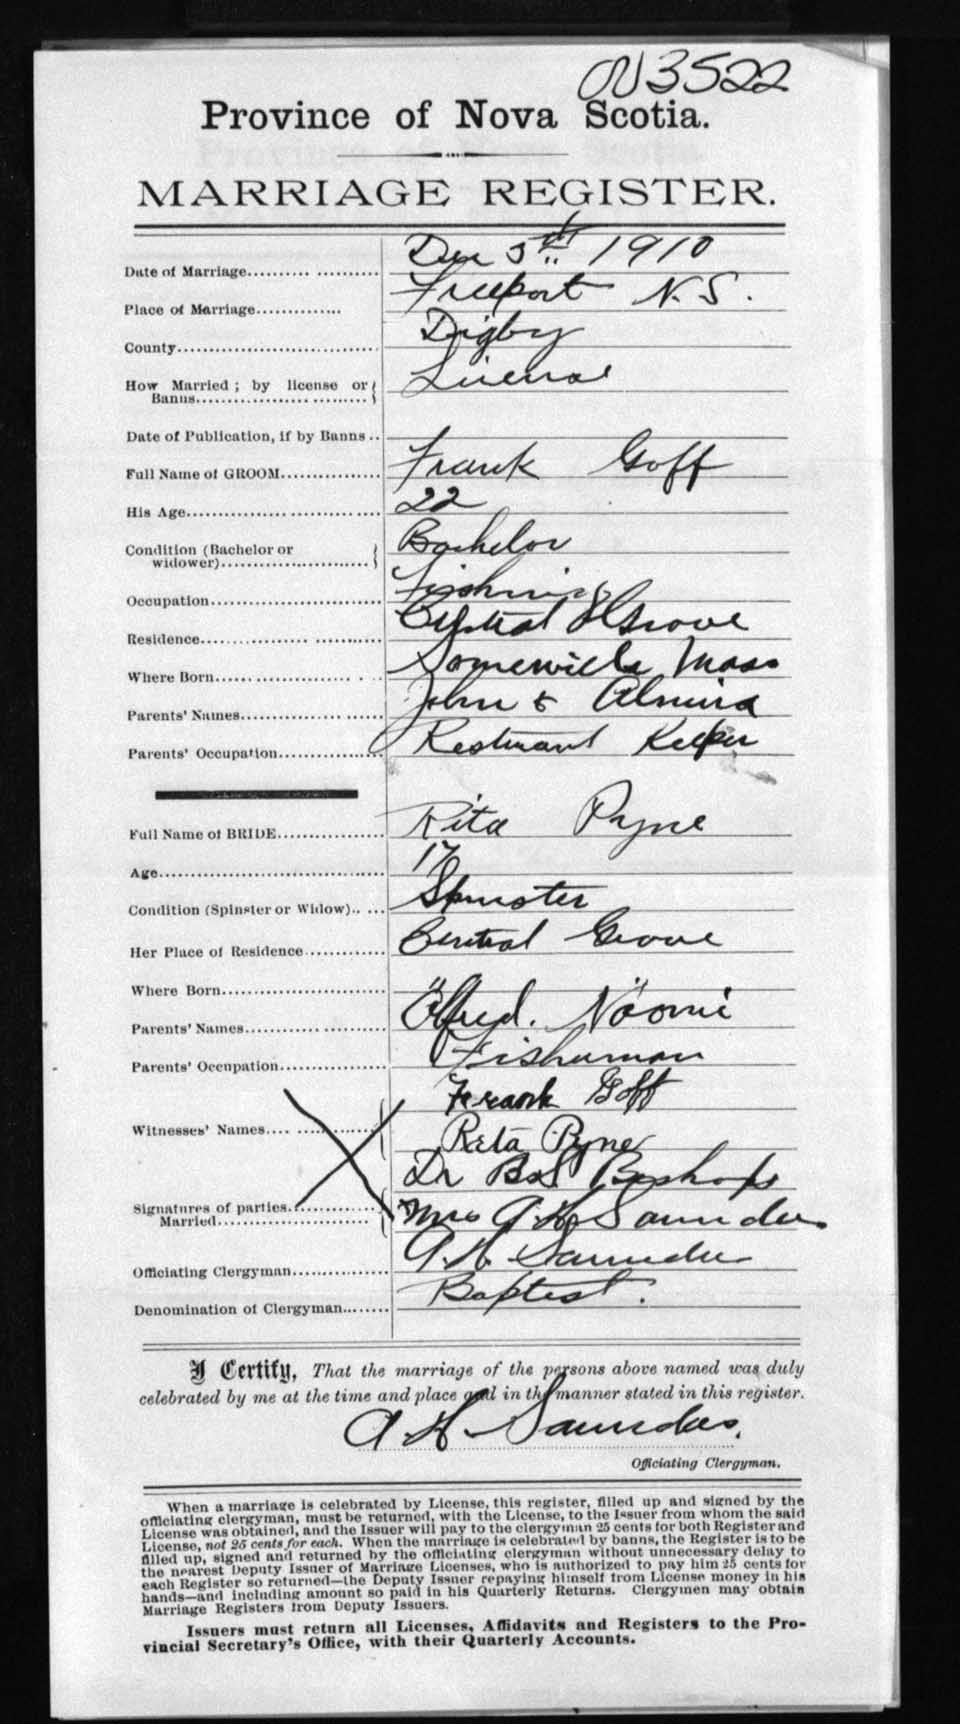 ON3522
Province of Nova Scotia.
MARRIAGE REGISTER.
Date of Marriage.......... Dec 5th 1910
Place of Marriage.............. Freeport N.S.
County................................ Digby
How Married ; by license or Banns........................... License
Date of Publication, if by Banns ..
Full Name of GROOM................ Frank Goff
His Age............................... 22
Condition (Bachelor or widower)........................ Bachelor
Occupation............................ Fishing
Residence............................. Central Grove
Where Born............................ Somerville Mass
Parents' Names........................ John & Almira
Parents' Occupation.................. Resturant Keeper
Full Name of BRIDE.................. Rita Pyne
Age...................................... 17
Condition (Spinster or Widow)..... Spinster
Her Place of Residence............. Central Grove
Where Born............................ " "
Parents' Names........................ Alfred. Naomi
Parents' Occupation.................. Fisherman
Frank Goff
Witnesses' Names.................... Rita Pyne
Dr Bishop
Signatures of parties Married........................ Mrs A H Saunders
Officiating Clergyman................ A. H. Saunders
Denomination of Clergyman........ Baptist.
I Certify, That the marriage of the persons above named was duly
celebrated by me at the time and place and in the manner stated in this register.
A H Saunders.
Officiating Clergyman.
When a marriage is celebrated by License, this register, filled up and signed by the
officiating clergyman, must be returned, with the License, to the Issuer from whom the said
License was obtained, and the Issuer will pay to the clergyman 25 cents for both Register and
License, not 25 cents for each. When the marriage is celebrated by banns, the Register is to be
filled up, signed and returned by the officiating clergyman without unnecessary delay to
the nearest Deputy Issuer of Marriage Licenses, who is authorized to pay him 25 cents for
each Register so returned—the Deputy Issuer repaying himself from License money in his
hands—and including amount so paid in his Quarterly Returns. Clergymen may obtain
Marriage Registers from Deputy Issuers.
Issuers must return all Licenses, Affidavits and Registers to the Pro-
vincial Secretary's Office, with their Quarterly Accounts.